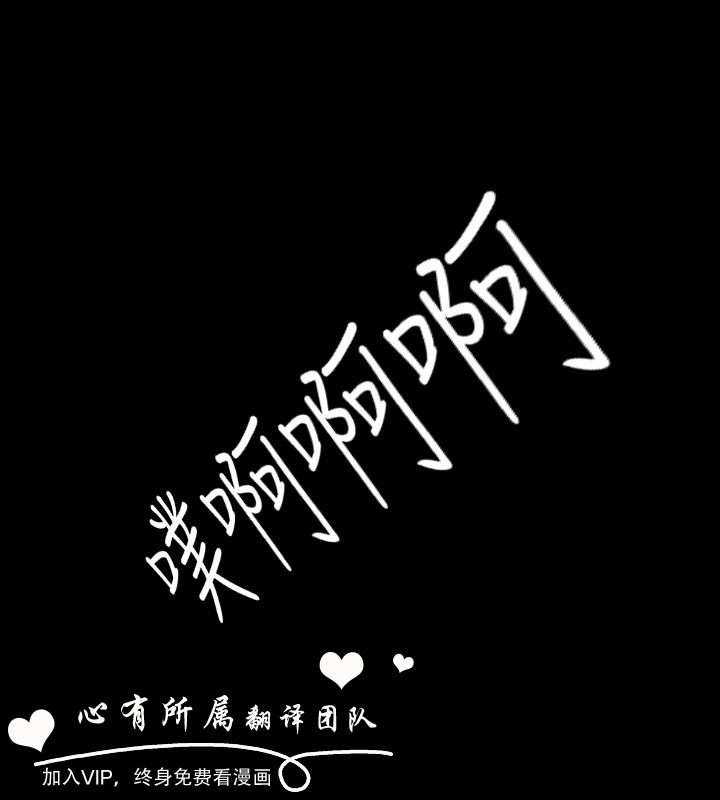 噗啊啊啊
心有所属翻译团队
加入VIP，终身免费看漫画